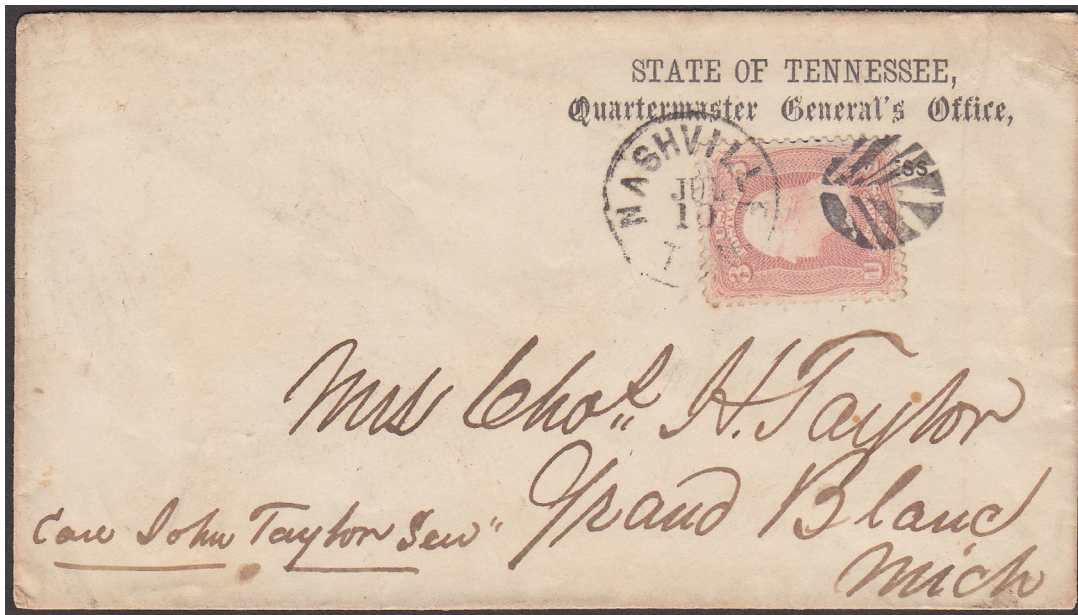 STATE OF TENNESSEE,
Quartermaster General's Office,
NASHVILLE
JUL
3 U
Mrs Chas. H. Taylor
Grand Blanc
Mich
Care John Taylor Sen"